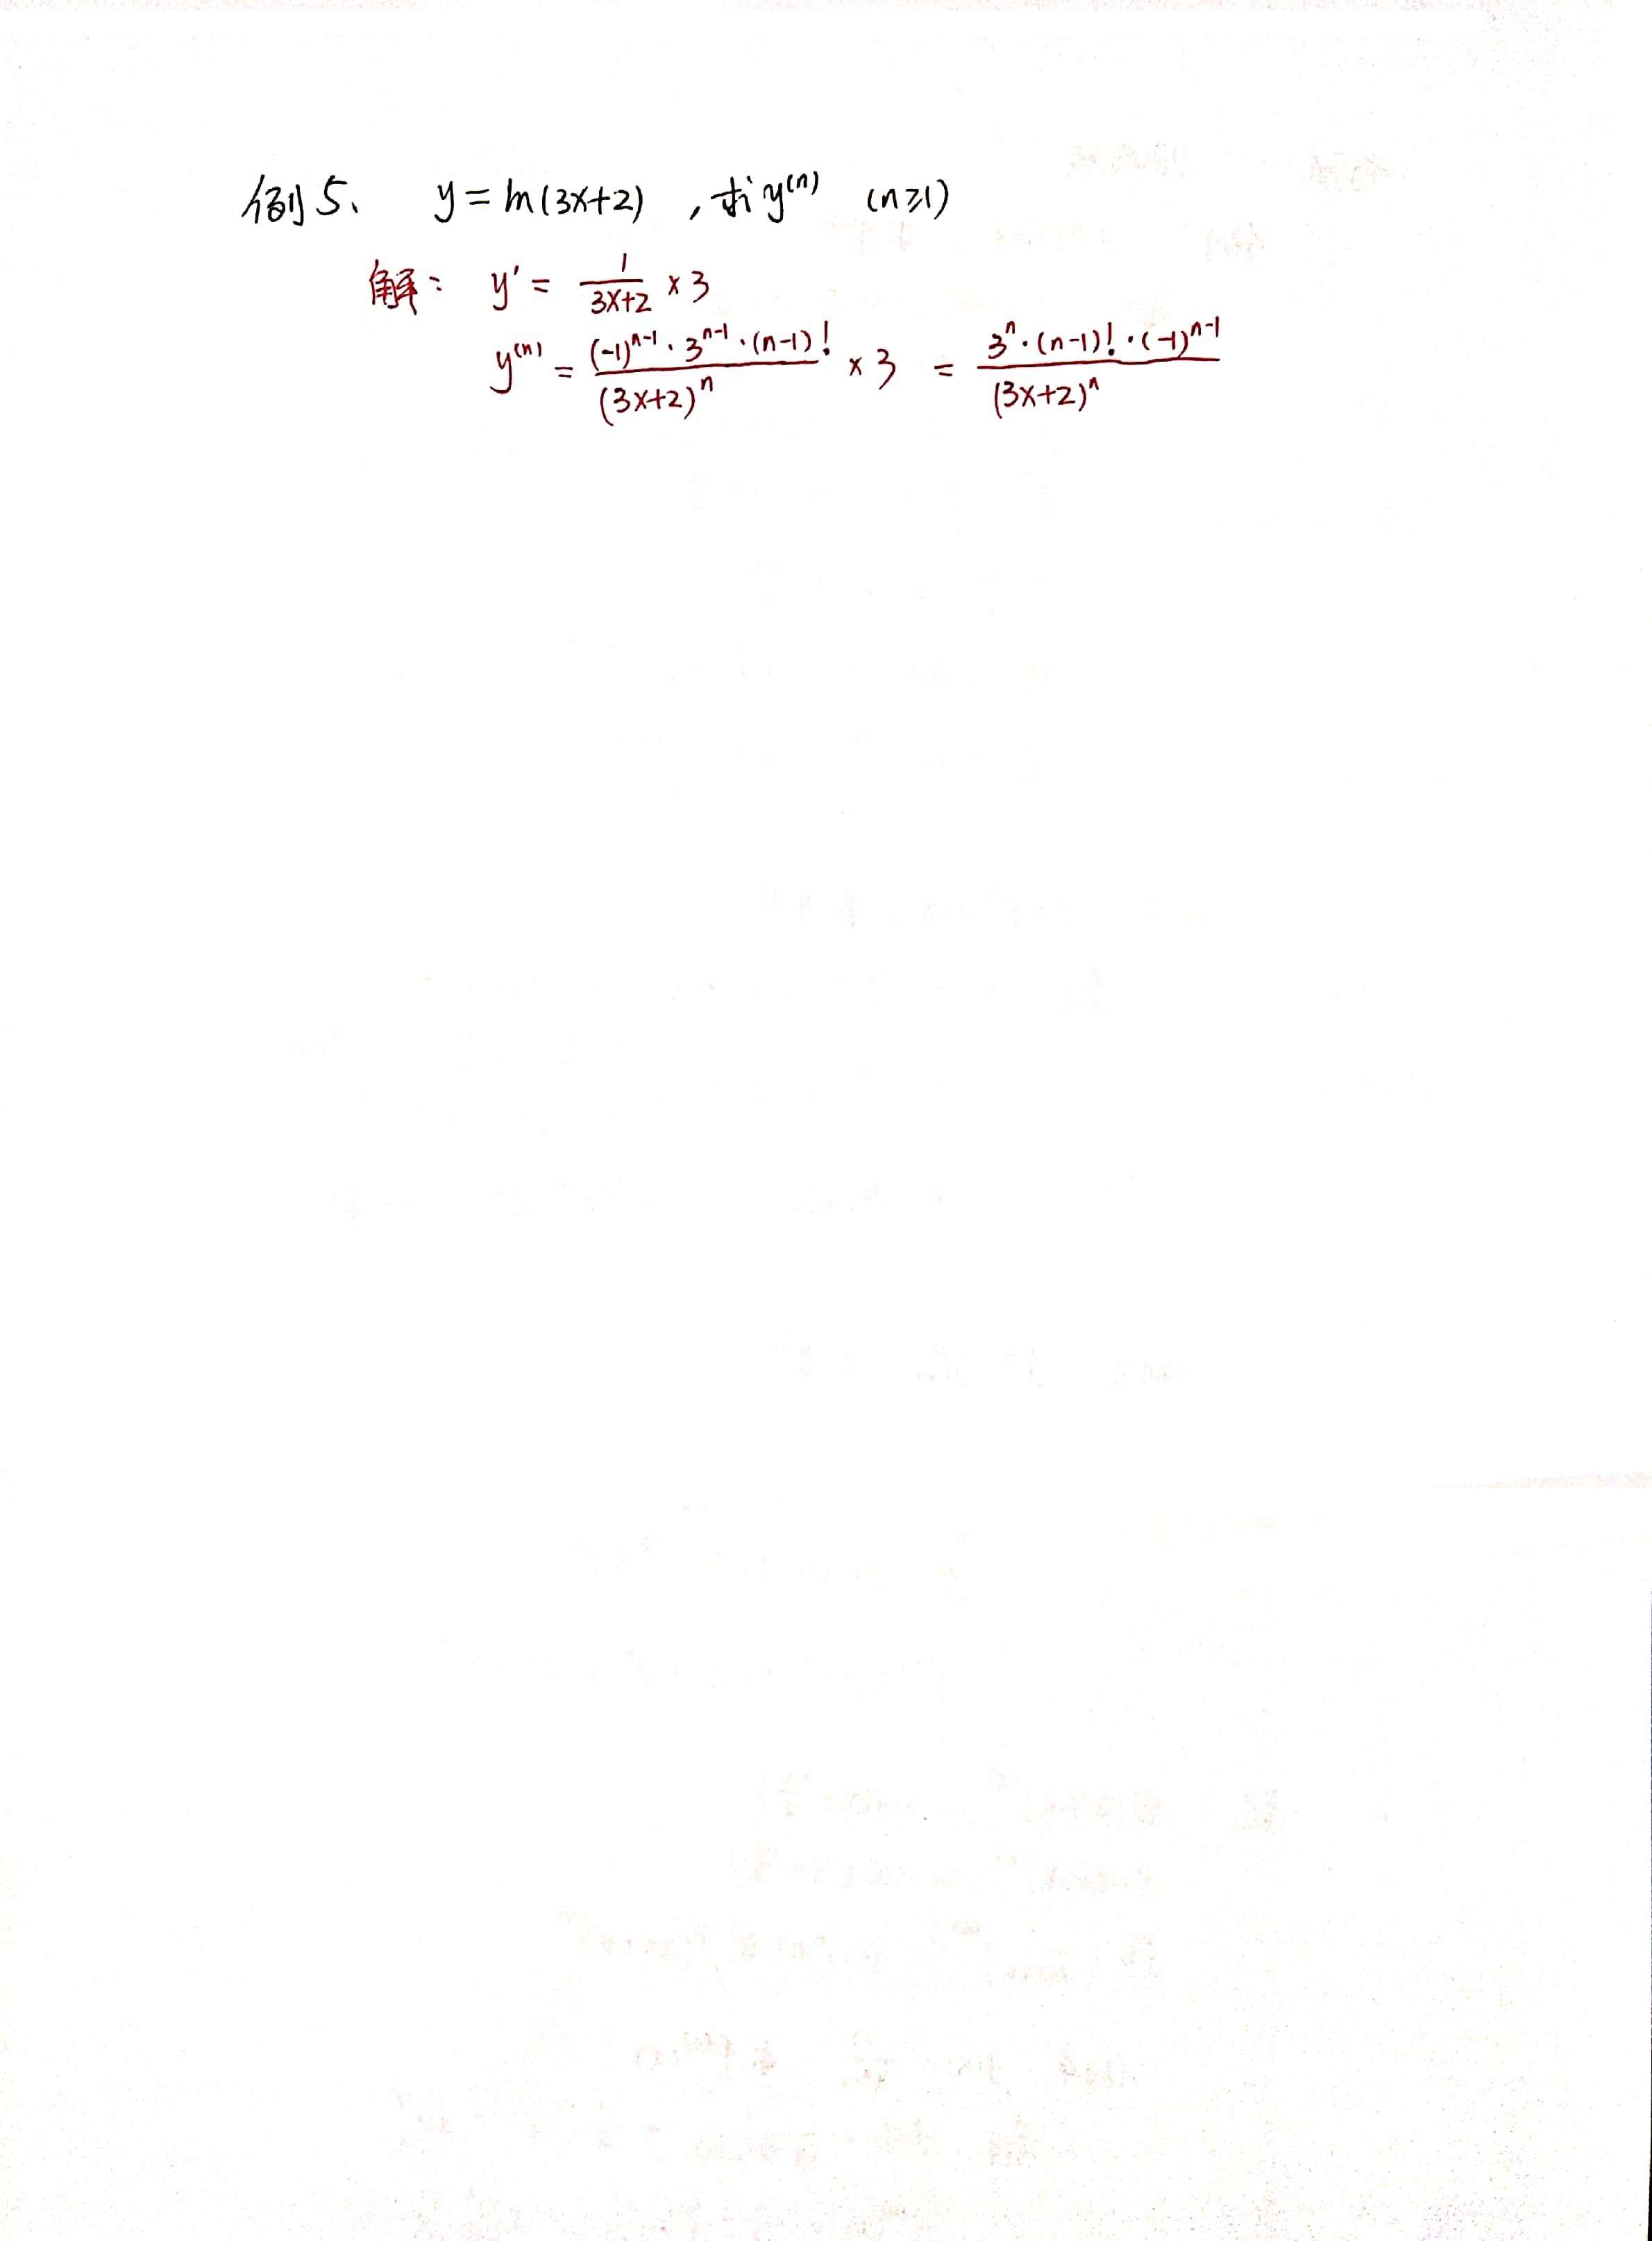 例5、 y = ln(3x+2) ,求y⁽ⁿ⁾ (n≥1)
解: y' = \frac{1}{3x+2} × 3
y⁽ⁿ⁾ = \frac{(-1)^{n-1}·3^{n-1}·(n-1)!}{(3x+2)^n} × 3 = \frac{3^n·(n-1)!·(-1)^{n-1}}{(3x+2)^n}